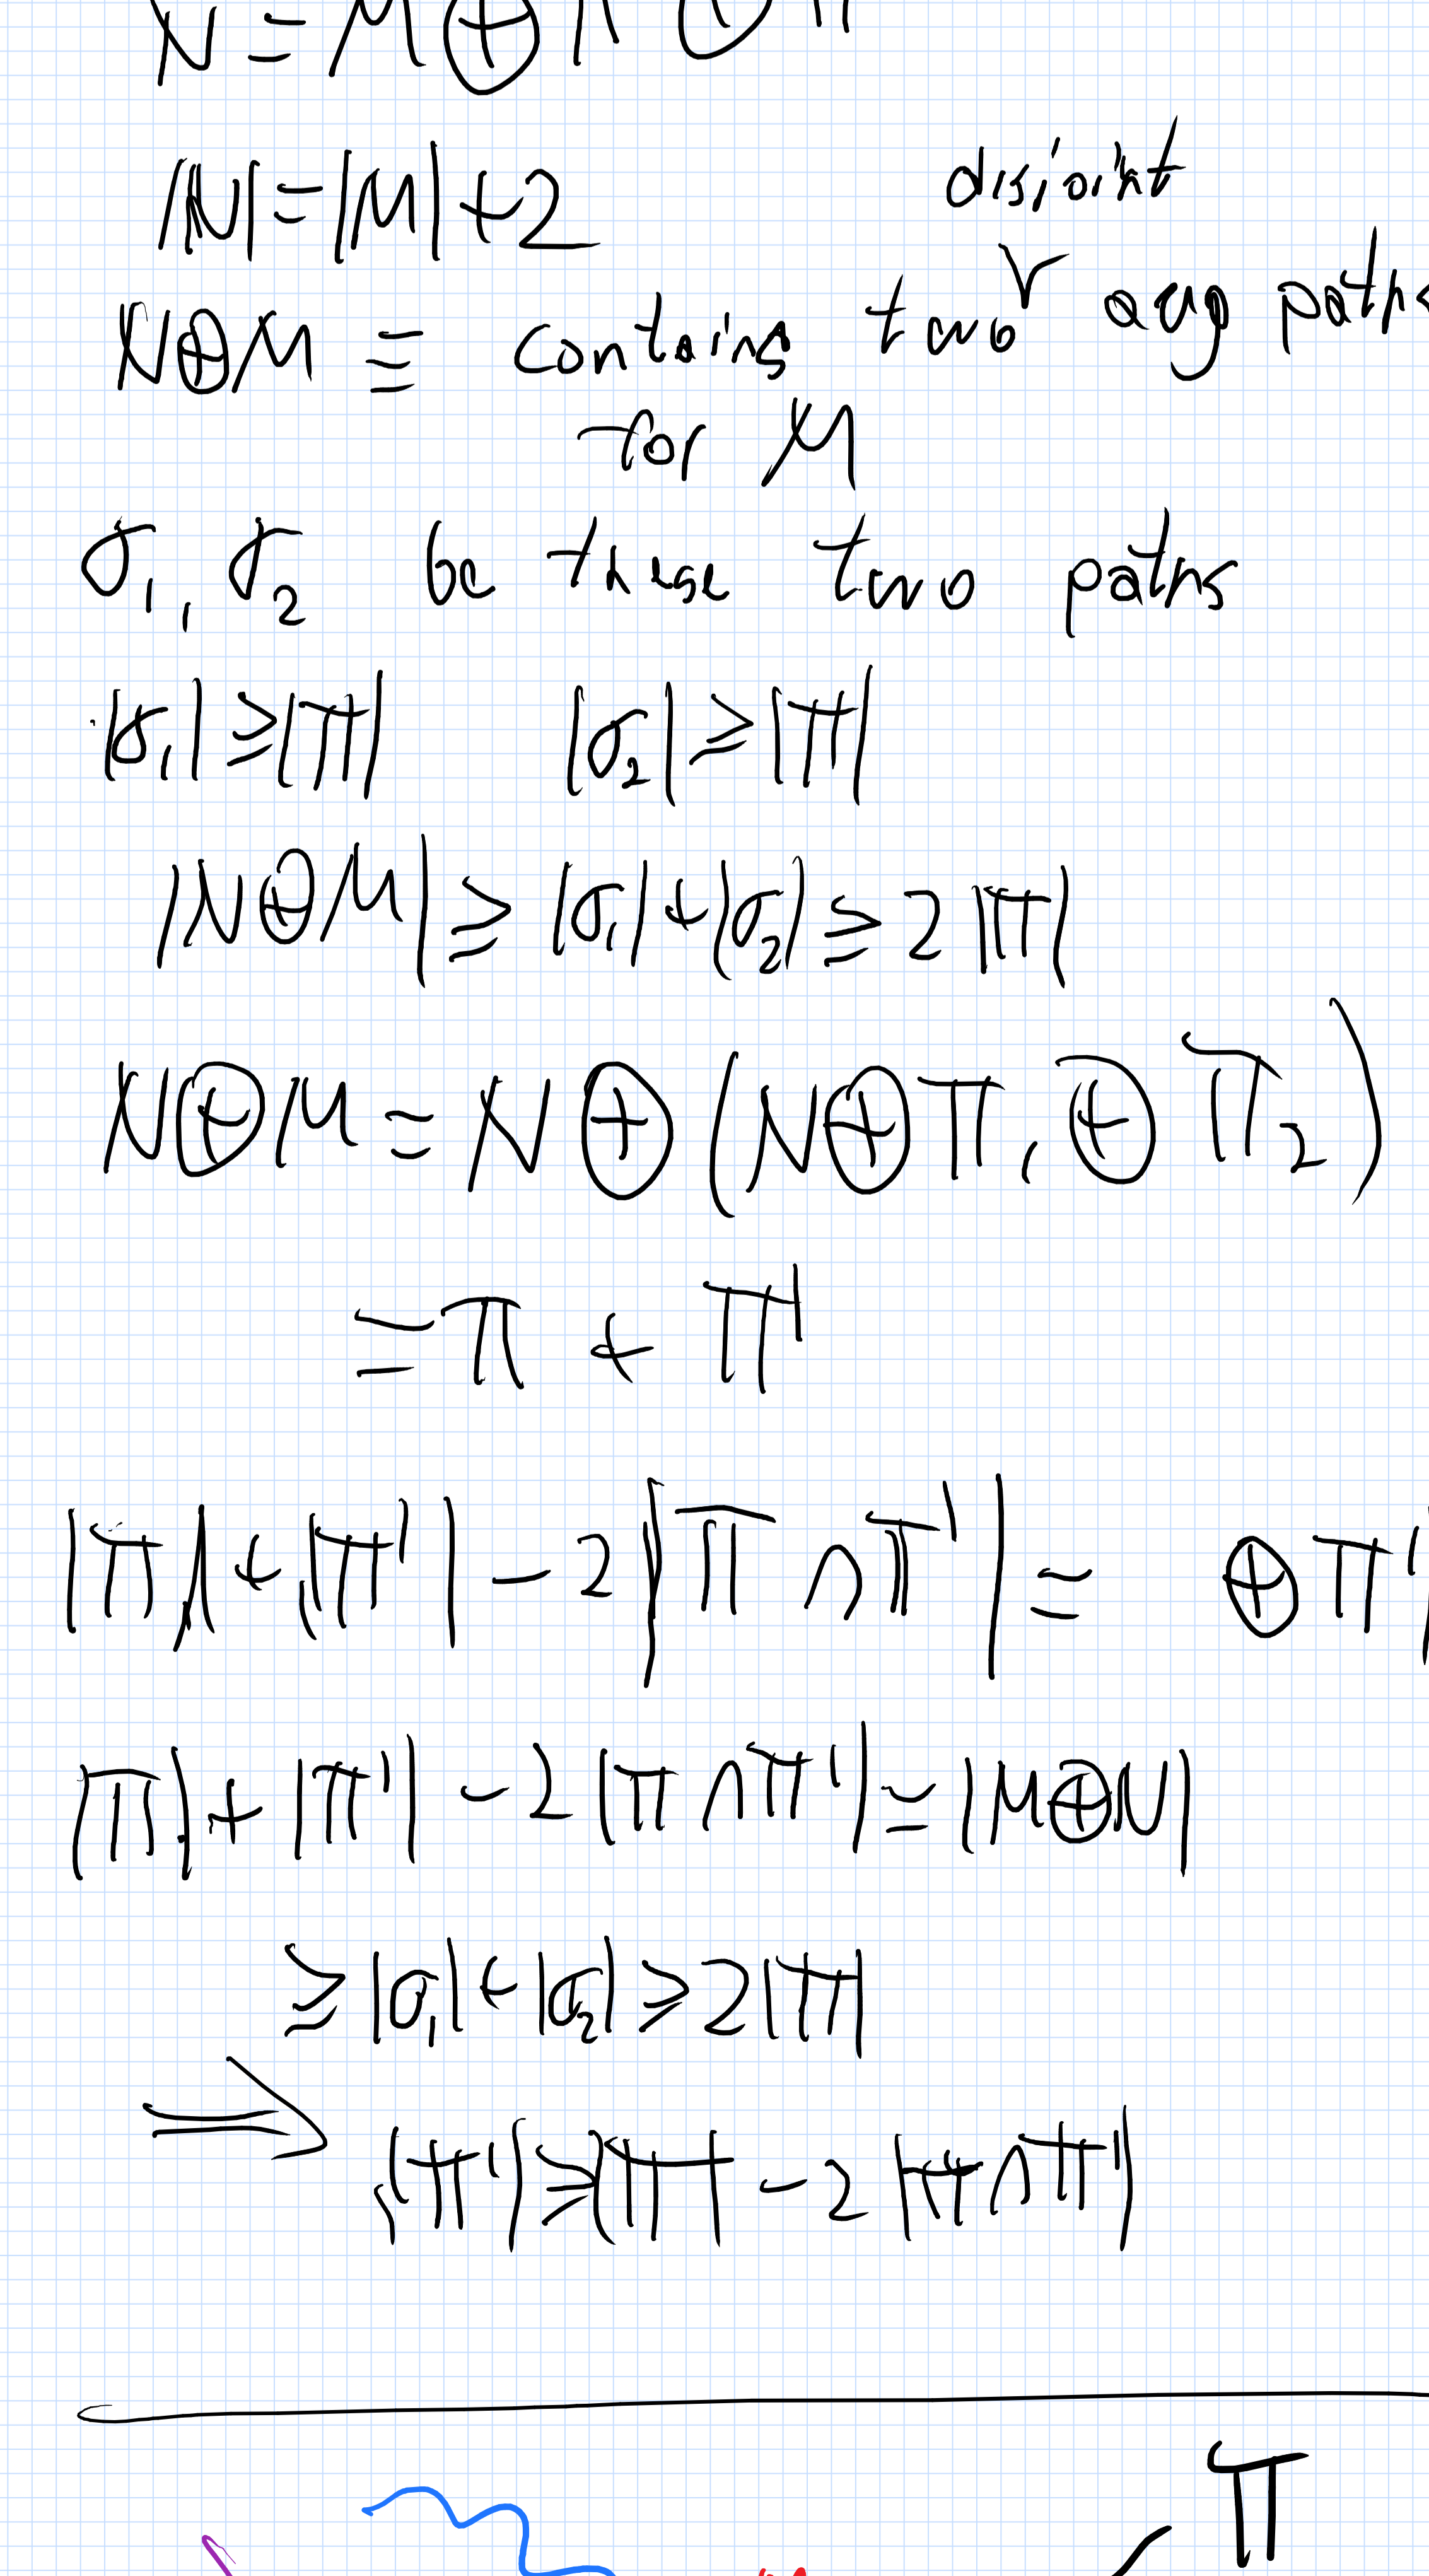 N = M ⊕ π ⊕ π
|N| = |M| + 2
disjoint
N⊕M ≡ contains two aug paths
for M
σ₁, σ₂ be these two paths
|σ₁| ≥ |π| |σ₂| ≥ |π|
|N⊕M| ≥ |σ₁| + |σ₂| ≥ 2|π|
N⊕M = N ⊕ (N⊕π₁ ⊕ π₂)
= π + π'
|π| + |π'| - 2|π ∩ π'| = ⊕ π'|
|π| + |π'| - 2|π ∩ π'| = |M⊕N|
≥ |σ₁| + |σ₂| ≥ 2|π|
⟹ |π'| ≥ |π| - 2|π ∩ π'|
π